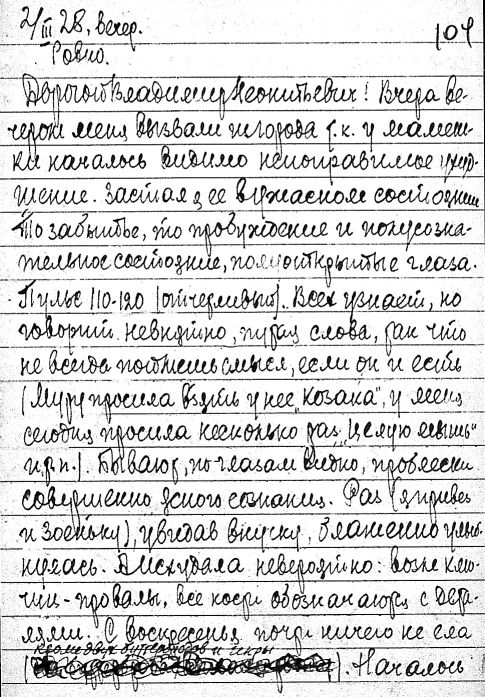 2/III 28, вечер.
104
Ровно.
Дорогой Владимир Леонтьевич! Вчера ве-
чером меня вызвали из города т.к. у мамень-
ки началось видимо непоправимое ухуд-
шение. Застал я ее в ужасном состоянии
То забытье, то пробуждение и полусозна-
тельное состояние, полуоткрытые глаза.
Пульс 110-120 (отчетливый). Всех узнает, но
говорит невнятно, путая слова, так что
не всегда поймешь смысл, если он и есть
(Муру просила взять у нее "козака", у меня
сегодня просила несколько раз "целую мышь"
и т.п.). Бывают, по глазам видно, проблески
совершенно ясного сознания. Раз (я привез
и Зоеньку), увидав внучку, блаженно улыб-
нулась. Исхудала невероятно: возле клю-
чиц - провалы, все кости обозначаются с дета-
лями. С воскресенья почти ничего не ела
кроме двух бутербродов и икры
( ). Началось